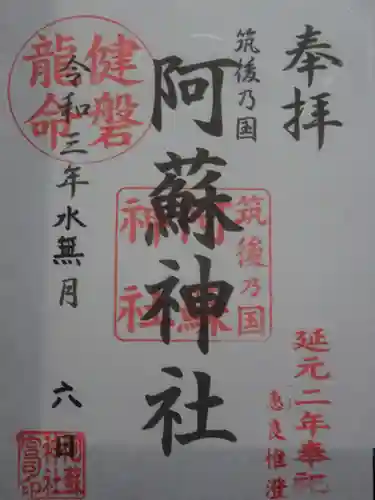 奉拝
筑後乃国
阿蘇神社
令和三年水無月 六日
健磐
龍命
筑後乃国
阿蘇
神社
延元二年奉祀
恵良惟澄